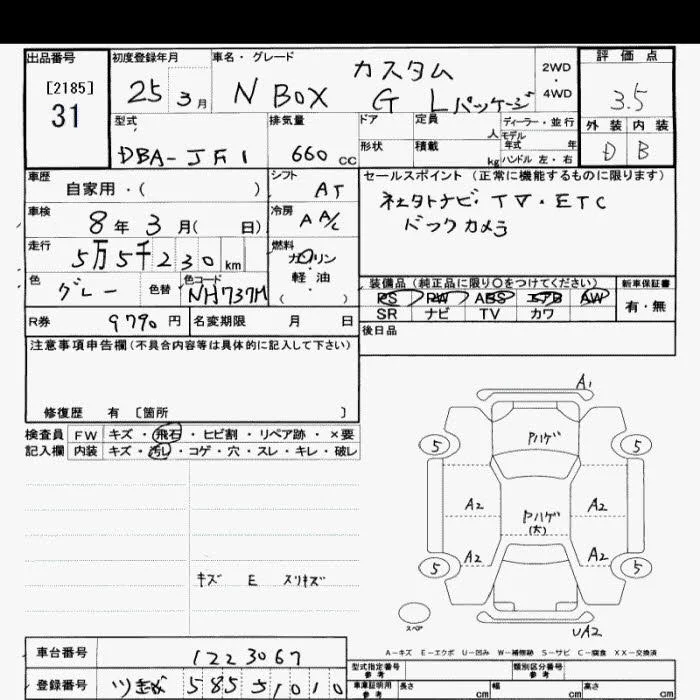 出品番号 初度登録年月 車名・グレード 評価点
[2185]
31
25 3月
N BOX カスタム
G Lパッケージ
2WD
・
4WD
3.5
型式 排気量 ドア 定員 人 ディーラー・並行 外装 内装
モデル年式 年
DBA-JF1 660 CC 形状 積載 kg ハンドル 左・右 D B
車歴 シフト セールスポイント (正常に機能するものに限ります)
自家用・( ) AT
車検 冷房
8年3月( 日) A A/C
TV・ETC
バックカメラ
走行 燃料
5万5千230km ガソリン
軽・油
( )
色 色替 色コード
グレー NH737M
装備品(純正品に限り〇をつけてください) 新車保証書
PS PW ABS エアB AW 有・無
SR ナビ TV カワ
R券 9790円 名変期限 月 日
後日品
注意事項申告欄(不具合内容等は具体的に記入して下さい)
修復歴 有 〔箇所 〕
検査員 FW キズ・飛石・ヒビ割・リペア跡・×要
記入欄 内装 キズ・汚レ・コゲ・穴・スレ・キレ・破レ
A1
Pハゲ
5 5
A2 A2
Pハゲ
(大)
A2 A2
5 5
キズ E スリキズ
スペア
UA2
A-キズ E-エクボ U-凹み W-補修跡 S-サビ C-腐食 XX-交換済
車台番号 1223067
型式指定番号 参考 類別区分番号 参考
登録番号 585 51010
車庫証明用 参考 長さ cm 幅 cm 高さ cm